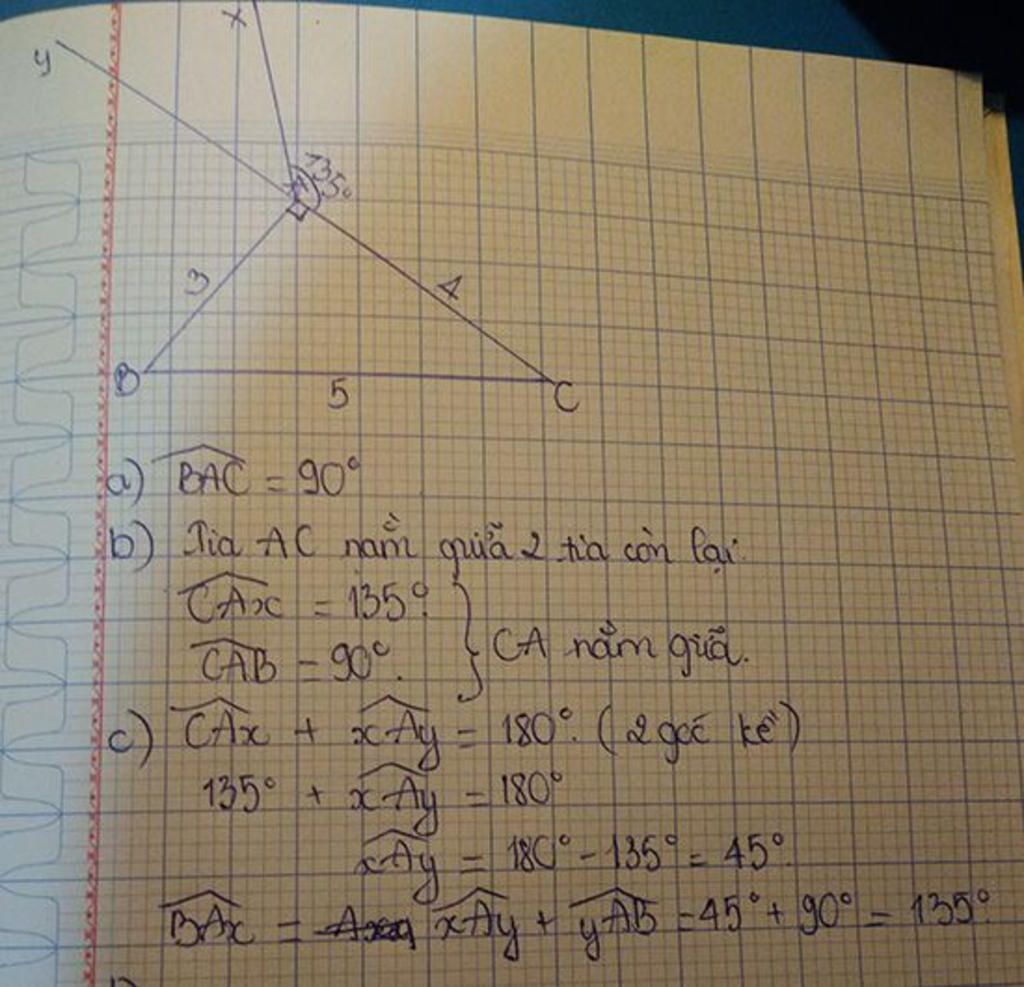 y x
A 135°
3 4
B 5 C
a) \widehat{BAC} = 90°
b) Tia AC nằm giữa 2 tia còn lại.
\widehat{CAx} = 135°.
\widehat{CAB} = 90°. } CA nằm giữa.
c) \widehat{CAx} + \widehat{xAy} = 180°. (2 góc kề)
135° + \widehat{xAy} = 180°
\widehat{xAy} = 180° - 135° = 45°.
\widehat{BAx} = \widehat{xAy} + \widehat{yAB} = 45° + 90° = 135°.